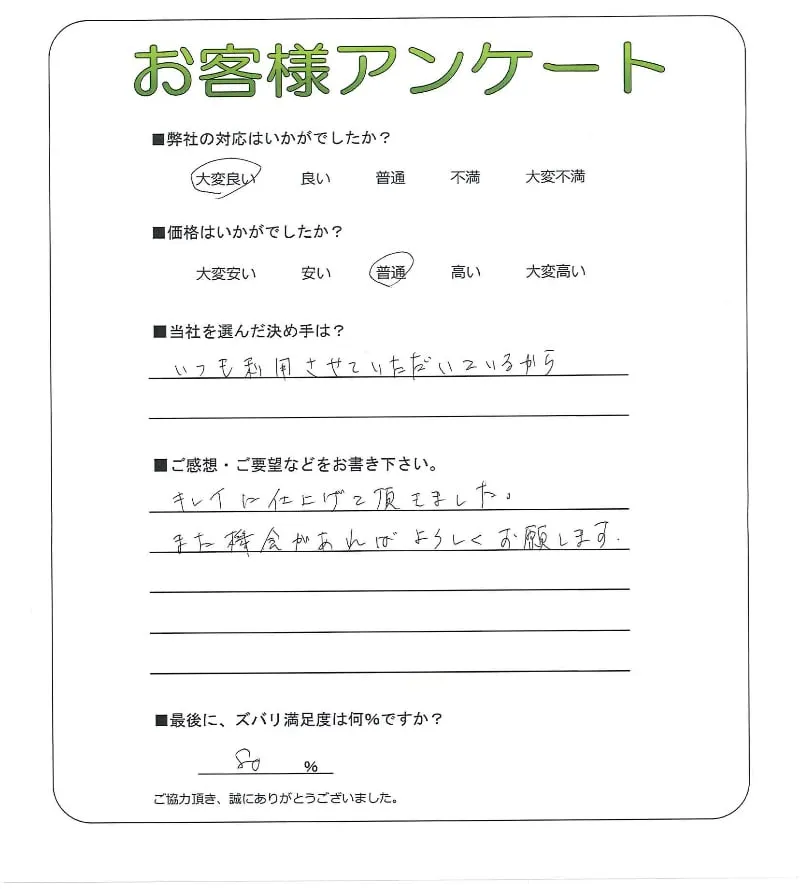 お客様アンケート
■弊社の対応はいかがでしたか？
大変良い 良い 普通 不満 大変不満
■価格はいかがでしたか？
大変安い 安い 普通 高い 大変高い
■当社を選んだ決め手は？
いつも利用させていただいているから
■ご感想・ご要望などをお書き下さい。
キレイに仕上げて頂きました。
また機会があればよろしくお願します.
■最後に、ズバリ満足度は何%ですか？
80 %
ご協力頂き、誠にありがとうございました。